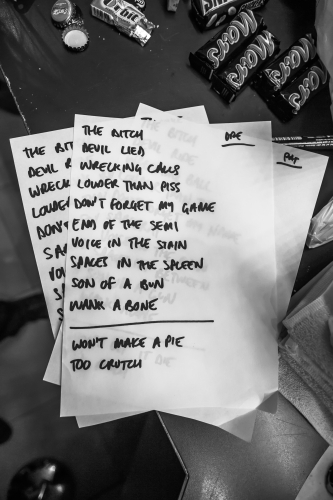 Mars
Mars
Mars
Mars
PAT
THE BITCH
DEVIL LIED
WRECKING CALLS
LOUDER THAN PISS
DON'T FORGET MY GAME
END OF THE SEMI
VOICE IN THE STAIN
SPACES IN THE SPLEEN
SON OF A BUN
WANK A BONE
WON'T MAKE A PIE
TOO CRUTCH
THE BIT
DEVIL
WRECK
LOUDE
DON'